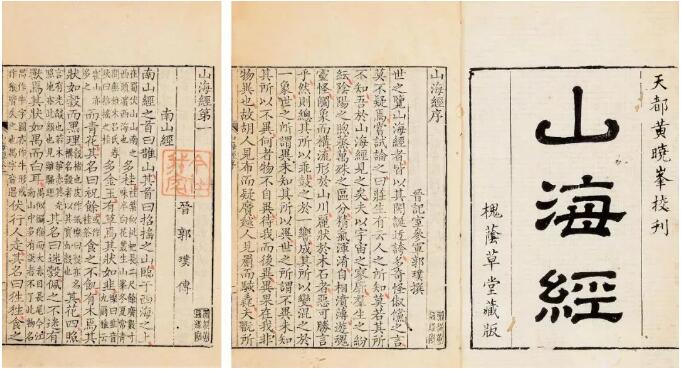 天都黄曉峯校刊
山海經
槐蔭草堂藏版
山海經序
晉記室參軍郭璞撰
世之覽山海經者皆以其閎誕迂誇多奇怪俶儻之言
莫不疑焉嘗試論之曰莊生有云人之所知莫若其所
不知吾於山海經見之矣夫以宇宙之寥廓群生之紛
紜陰陽之煦蒸萬殊之區分精氣渾淆自相濆薄遊魂
靈怪觸象而構流形於山川麗狀於木石者惡可勝言
乎然則總其所以乖鼓之於一響成其所以變混之於
一象世之所謂異未知其所以異世之所謂不異未知
其所以不異何者物不自異待我而後異異果在我非
物異也故胡人見布而疑黂越人見罽而駭毳夫翫所
山海經第一
南山經
晉郭璞傳
南山經之首曰䧿山其首曰招搖之山臨于西海之上
多桂
多金玉有草焉其狀如韭
而青花其名曰祝餘食之不飢有木焉其
狀如穀而黑理其花四照
其名曰迷穀佩之不迷有
獸焉其狀如禺而白耳
伏行人走其名曰狌狌食之